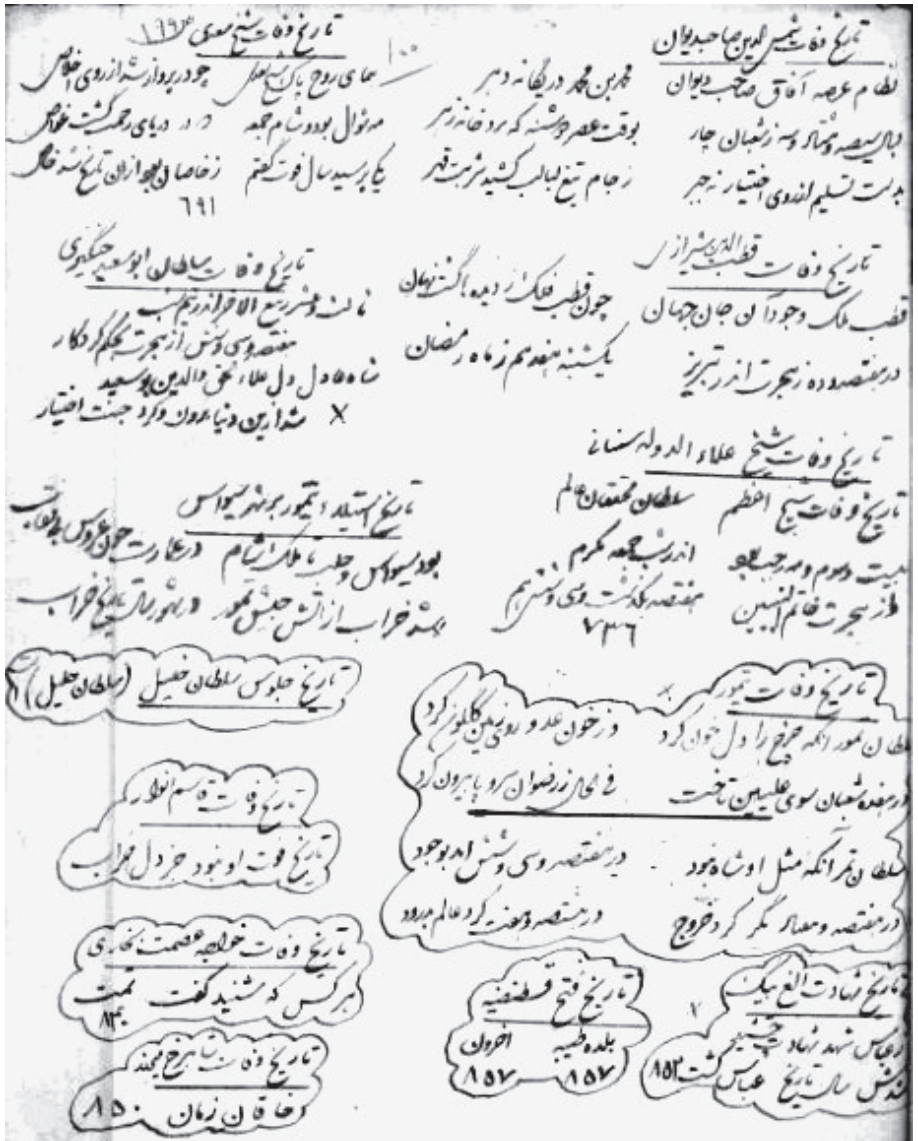 تاریخ وفات شمس الدین صاحبدیوان
نظام عرصه آفاق صاحب دیوان محمد بن محمد در یگانه دهر
بسال ششصد و هشتاد و سه ز شعبان چار بوقت عصر دوشنبه که برودخانه نهر
بدست تسلیم از روی اختیار نه جبر ز جام تیغ لبالب کشید شربت قهر
تاریخ وفات شیخ سعدی ۶۹۱
۱۰۰
همای روح پاک شیخ سعدی چو در پرواز شد از روی اخلاص
مه شوال بود و شام جمعه که در دریای رحمت گشت غواص
یکی پرسید سال فوت گفتم ز خاصان بود از ان تاریخ شد خاص
۶۹۱
تاریخ وفات قطب الدین شیرازی
قطب ملک وجود آن جان جهان چون قطب فلک از دیده ها گشت نهان
در هفتصد و ده ز هجرت اندر تبریز یکشنبه هفدهم ز ماه رمضان
تاریخ وفات سلطان ابو سعید چنگیزی
ثالث و عشر ربیع الاخر اندر نیم شب
هفتصد و سی و شش از هجرت بحکم کردگار
شاه عادل دل علاء الحق والدین بوسعید
شد ازین دنیا برون و کرد جنت اختیار
تاریخ وفات شیخ علاء الدوله سمنانی
تاریخ وفات شیخ اعظم سلطان محققان عالم
بیست و دوم مه رجب بود اندر شب جمعه مکرم
از هجرت خاتم النبیین هفتصد بگذشت و سی و شش هم
۷۳۶
تاریخ استیلاء تیمور بر شهر سیواس
بود سیواس و حلب تا ملک شام در عمارت چون عروس بی نقاب
شد خراب از آتش جیش تمور در شهور سال تاریخ خراب
تاریخ وفات تیمور
سلطان تمور انکه چرخ را دل خون کرد وز خون عدو روی زمین گلگون کرد
در هفده شعبان سوی علیین تاخت فی الحال ز رضوان سر و پا بیرون کرد
سلطان تمر آنکه مثل او شاه نبود در هفتصد و سی و شش امد بوجود
در هفتصد و هفتاد یکی کرد خروج در هشتصد و هفت کرد عالم بدرود
تاریخ جلوس سلطان خلیل (سلطان خلیل)
تاریخ وفات قاسم انوار
تاریخ فوت او نبود جز دل خراب
تاریخ وفات خواجه عصمت بخاری
هر کس که شنید گفت تمت
۸۴۰
تاریخ وفات شاهرخ میرزا
خاقان زمان ۸۵۰
تاریخ فتح قسطنطنیه
بلده طیبه اخرون
۸۵۷ ۸۵۷
تاریخ شهادت الغ بیک
ز عباس شهد شهادت چشید
شدش سال تاریخ عباس کشت ۸۵۳